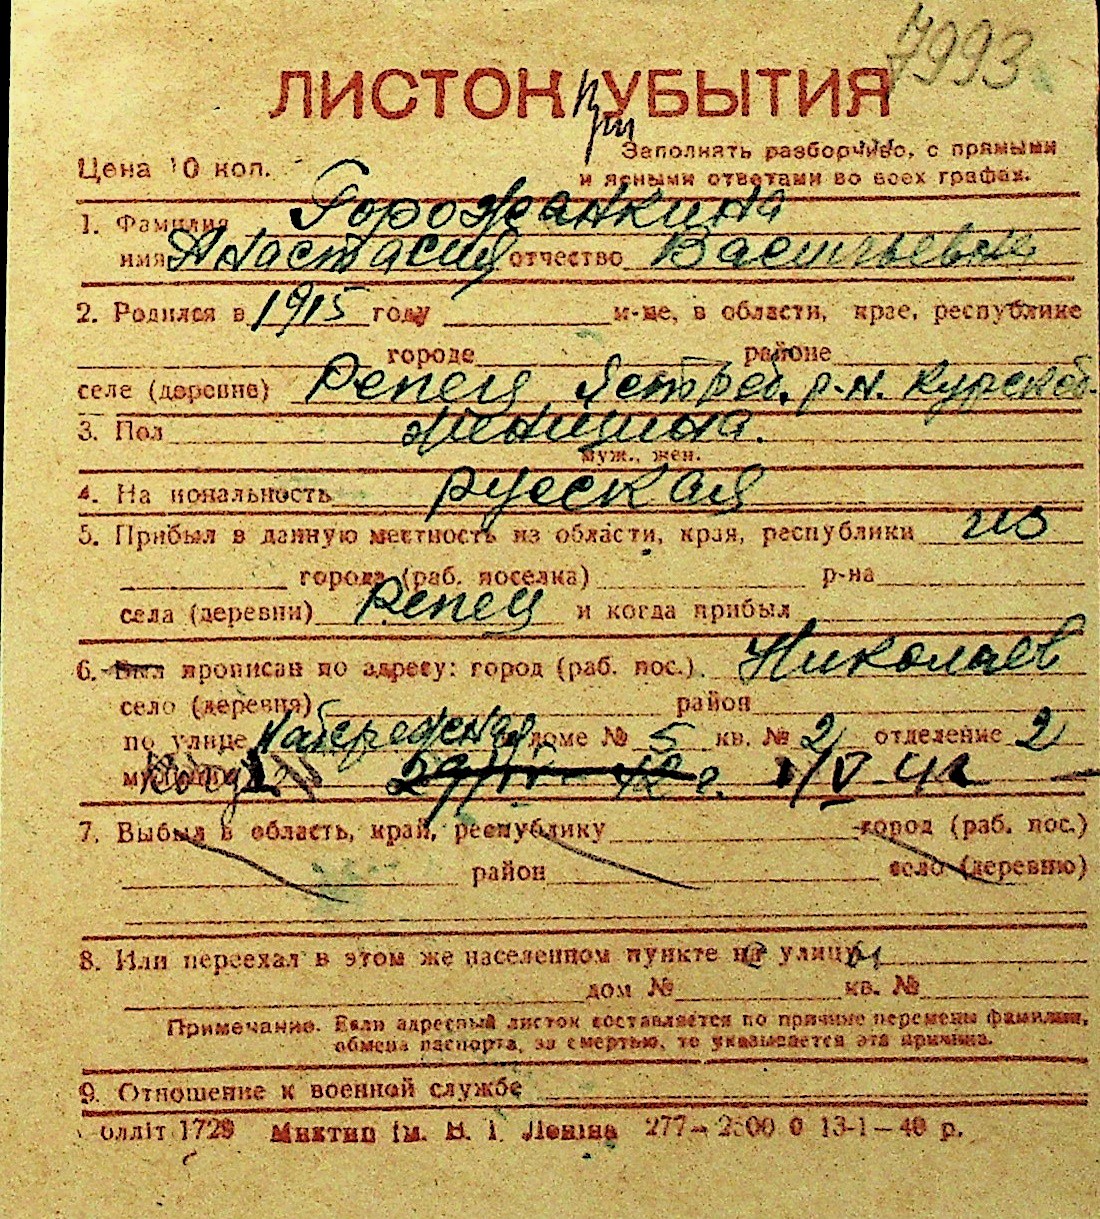 7993
ЛИСТОК УБЫТИЯ
Заполнять разборчиво, с прямыми
Цена 10 коп.
и ясными ответами во всех графах.
1. Фамилия Горожанкина
имя Анастасия отчество Васильевна
2. Родился в 1915 году м-це, в области, крае, республике
городе районе
селе (деревне) Репец Ястреб. р-н. Курской
3. Пол женщина.
муж., жен.
4. Национальность русская
5. Прибыл в данную местность из области, края, республики из
города (раб. поселка) р-на
села (деревни) Репец и когда прибыл
6. Был прописан по адресу: город (раб. пос.) Николаев
село (деревня) район
по улице Набережная доме № 5 кв. № 2 отделение 2
29/IV-42 г. 1/V 42
7. Выбыл в область, край, республику город (раб. пос.)
район село (деревню)
8. Или переехал в этом же населенном пункте на улицу
дом № кв. №
Примечание. Если адресный листок составляется по причине перемены фамилии,
обмена паспорта, за смертью, то указывается эта причина.
9. Отношение к военной службе
олліт 1729 Миктип ім. В. І. Леніна 277—2500 0 13-1—40 р.